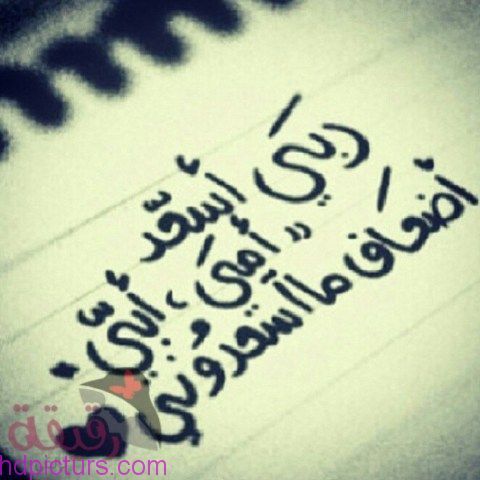 ربي أسعد
" أمي ، أبي .
أضعاف ما أسعدوني
رقيقة
hdpicturs.com